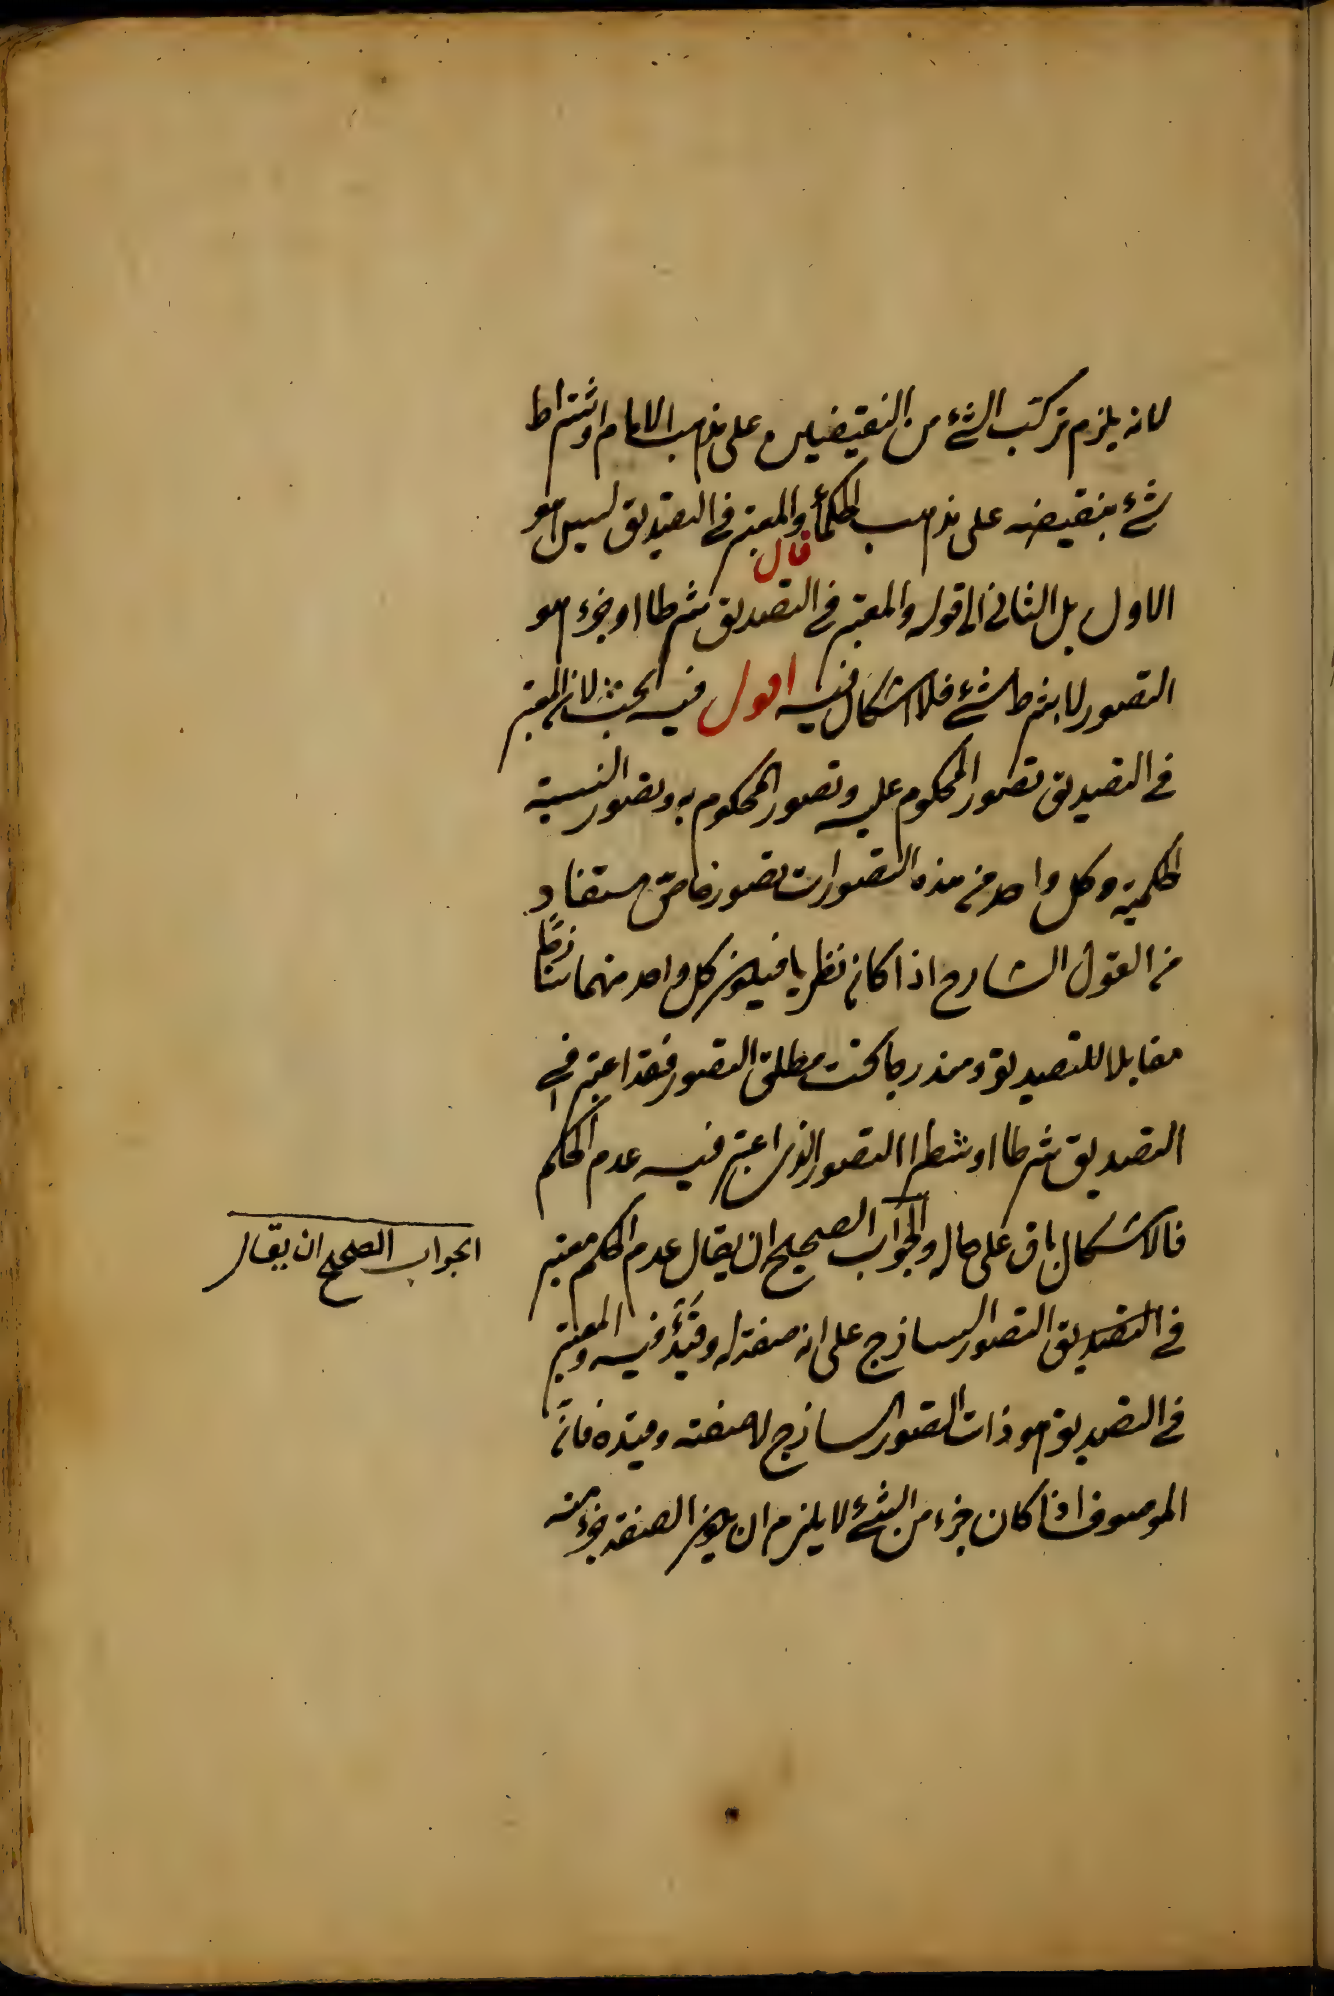 لانه يلزم تركب الشئ من النقيضين على مذهب الامام او اشتراط
شئ بنقيضه على مذهب الحكماء والمعتبر في التصديق ليس هو
قال
الاول بل الثاني الى قوله والمعتبر في التصديق شرطا او جزء هو
التصور لا بشرط شئ فلا اشكال فيه اقول فيه بحث لان المعتبر
في التصديق تصور المحكوم عليه وتصور المحكوم به وتصور النسبة
الحكمية وكل واحد من هذه التصورات تصور خاص مستفاد
من القول الشارح اذا كان نظريا فيكون كل واحد منهما
مقابلا للتصديق ومندرجا تحت مطلق التصور فقد اعتبر في
التصديق شرطا او شطرا التصور الذي اعتبر فيه عدم الحكم
فالاشكال باق على حاله والجواب الصحيح ان يقال عدم الحكم معتبر
في التصديق التصور الساذج على انه صفة له وقيد فيه والمعتبر
في التصديق هو ذات التصور الساذج لا صفته وقيده فان
الموصوف اذا كان جزء من الشئ لا يلزم ان يكون الصفة جزء منه
الجواب الصحيح ان يقال